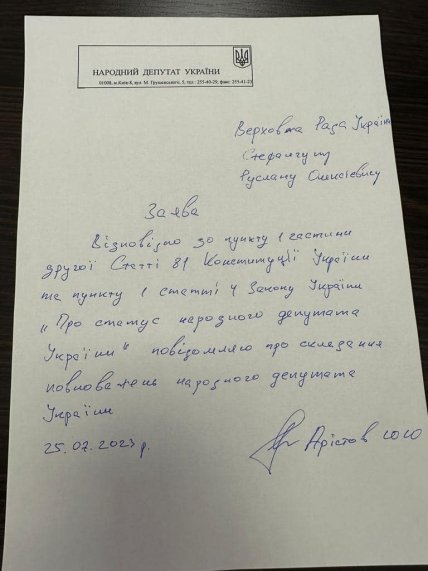 НАРОДНИЙ ДЕПУТАТ УКРАЇНИ
01008, м.Київ-8, вул. М. Грушевського, 5, тел.: 255-40-29; факс: 255-41-23
Верховна Рада України
Стефанчуку
Руслану Олексієвичу
Заява
Відповідно до пункту 1 частини
другої Статті 81 Конституції України
та пункту 1 статті 4 Закону України
„Про статус народного депутата
України" повідомляю про складання
повноважень народного депутата
України
25.07.2023 р.
Арістов ЮЮ